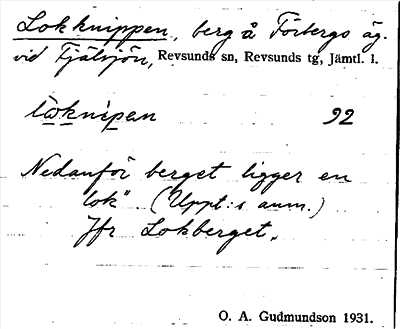 Lokknippen, berg å Förbergs äg.
vid Fjälsjön, Revsunds sn, Revsunds tg, Jämtl. l.
92
Nedanför berget ligger en
lok". (Uppt:s anm.)
Jfr Lokberget.
O. A. Gudmundson 1931.